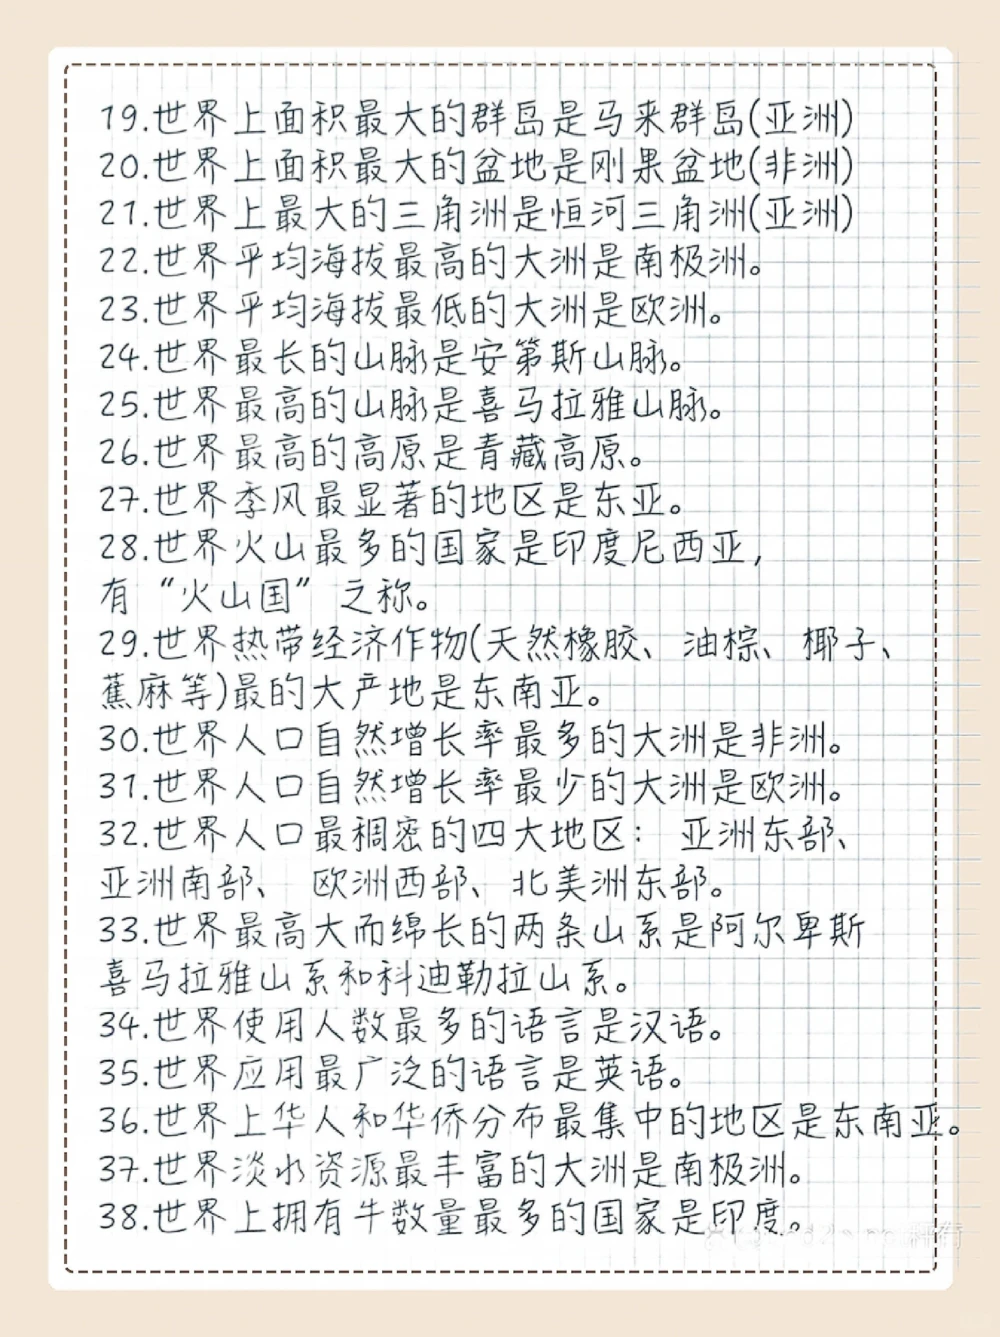 19.世界上面积最大的群岛是马来群岛(亚洲)
20.世界上面积最大的盆地是刚果盆地(非洲)
21.世界上最大的三角洲是恒河三角洲(亚洲)
22.世界平均海拔最高的大洲是南极洲。
23.世界平均海拔最低的大洲是欧洲。
24.世界最长的山脉是安第斯山脉。
25.世界最高的山脉是喜马拉雅山脉。
26.世界最高的高原是青藏高原。
27.世界季风最显著的地区是东亚。
28.世界火山最多的国家是印度尼西亚,
有“火山国”之称。
29.世界热带经济作物(天然橡胶、油棕、椰子、
蕉麻等)最的大产地是东南亚。
30.世界人口自然增长率最多的大洲是非洲。
31.世界人口自然增长率最少的大洲是欧洲。
32.世界人口最稠密的四大地区: 亚洲东部、
亚洲南部、 欧洲西部、北美洲东部。
33.世界最高大而绵长的两条山系是阿尔卑斯
喜马拉雅山系和科迪勒拉山系。
34.世界使用人数最多的语言是汉语。
35.世界应用最广泛的语言是英语。
36.世界上华人和华侨分布最集中的地区是东南亚。
37.世界淡水资源最丰富的大洲是南极洲。
38.世界上拥有牛数量最多的国家是印度。